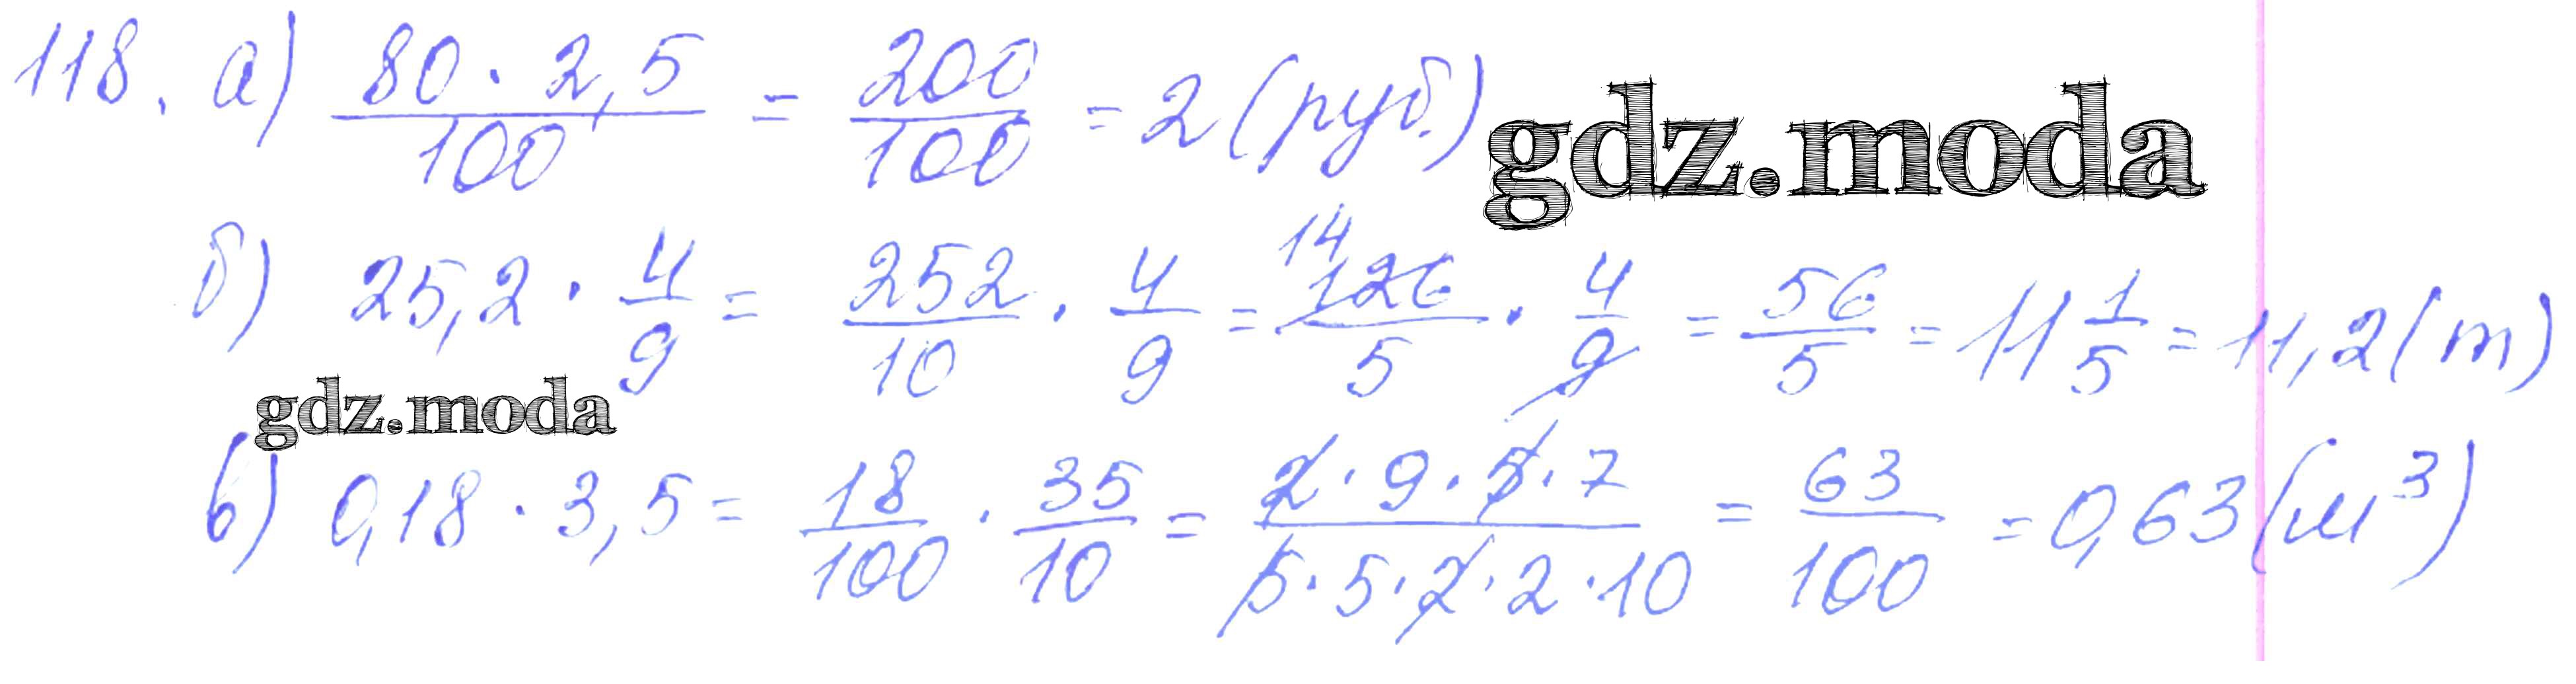 118. а) 80 · 2,5 / 100 = 200 / 100 = 2 (руб.)
gdz.moda
б) 25,2 · 4/9 = 252/10 · 4/9 = 14 126/5 · 4/9 = 56/5 = 11 1/5 = 11,2 (т)
gdz.moda
в) 0,18 · 3,5 = 18/100 · 35/10 = 2 · 9 · 5 · 7 / 5 · 5 · 2 · 2 · 10 = 63/100 = 0,63 (м³)